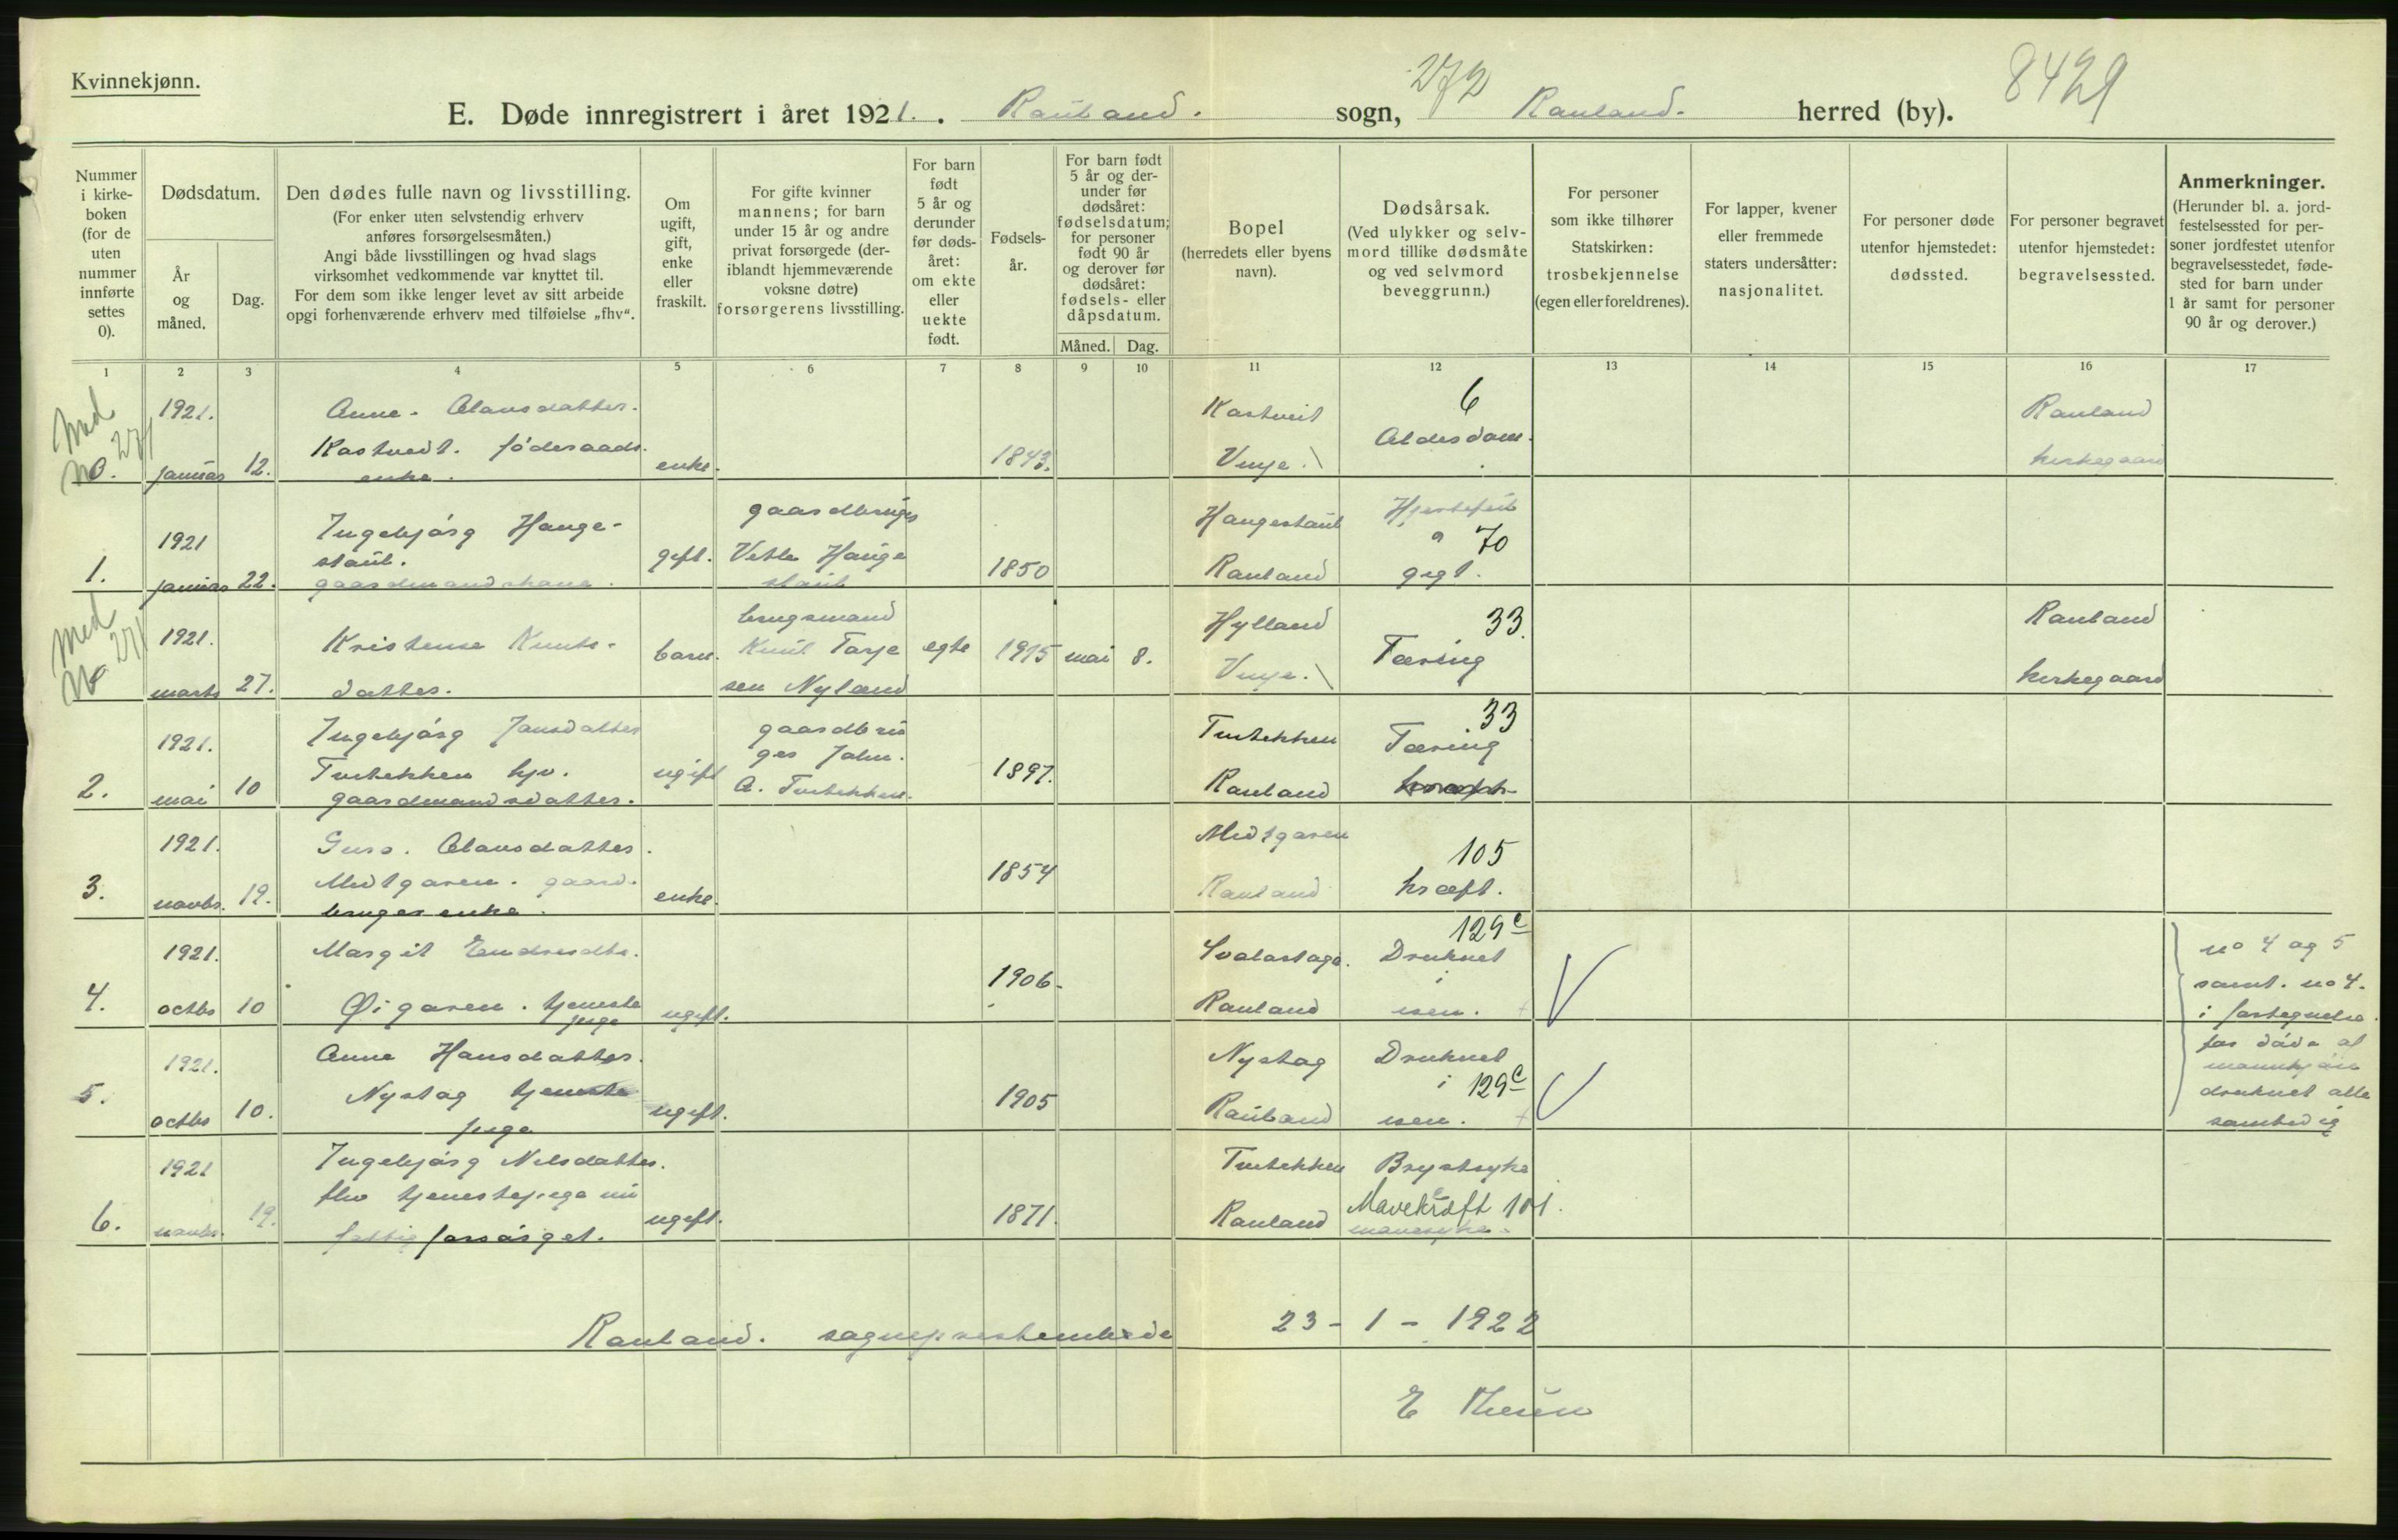 Kvinnekjønn.
272
8429
E. Døde innregistrert i året 1921. Rauland. sogn, Rauland. herred (by).
Nummer i kirke- boken (for de uten nummer innførte settes 0).
Dødsdatum.
År og måned.
Dag.
Den dødes fulle navn og livsstilling.
(For enker uten selvstendig erhverv
anføres forsørgelsesmåten.)
Angi både livsstillingen og hvad slags
virksomhet vedkommende var knyttet til.
For dem som ikke lenger levet av sitt arbeide
opgi forhenværende erhverv med tilføielse „fhv“.
Om ugift, gift, enke eller fraskilt.
For gifte kvinner
mannens; for barn
under 15 år og andre
privat forsørgede (der-
iblandt hjemmeværende
voksne døtre)
forsørgerens livsstilling.
For barn født 5 år og derunder før døds- året: om ekte eller uekte født.
Fødsels- år.
For barn født
5 år og der-
under før
dødsåret:
fødselsdatum;
for personer
født 90 år
og derover før
dødsåret:
fødsels- eller
dåpsdatum.
Måned. Dag.
Bopel
(herredets eller byens
navn).
Dødsårsak.
(Ved ulykker og selv-
mord tillike dødsmåte
og ved selvmord
beveggrunn.)
For personer
som ikke tilhører
Statskirken:
trosbekjennelse
(egen eller foreldrenes).
For lapper, kvener
eller fremmede
staters undersåtter:
nasjonalitet.
For personer døde
utenfor hjemstedet:
dødssted.
For personer begravet
utenfor hjemstedet:
begravelsessted.
Anmerkninger.
(Herunder bl. a. jord-
festelsessted for per-
soner jordfestet utenfor
begravelsesstedet, føde-
sted for barn under
1 år samt for personer
90 år og derover.)
1 2 3 4 5 6 7 8 9 10 11 12 13 14 15 16 17
Med 271
1921. Anne. Olausdatter. Kastveit 6 Rauland
No. januar 12. Kastvedt. föderaads enke. 1843. Vinje. Aldesdom. kirkegaard
enke.
1921 Ingebjörg Hauge- gaardbruger Haugestaul Hjertefeil
1. januar 22. staul. gift. Vetle Hauge 1850 Rauland og 70
gaardmandskone. staul gigt.
Med 271
1921. Kristense Knuts- barn. brugsmand egte 1915 mai 8. Hylland 33. Rauland
No marts 27. datter. Knut Tarje Vinje. Tæring kirkegaard
sen Nyland
1921. Ingebjörg Jonsdatter gaardbru Turtekken 33
2. mai 10 Turtekken hjv. ugift ger John. 1897. Rauland Tæring
gaardmandsdatter. A. Turtekken.
1921. Guro. Olausdatter. Midtgaren 105
3. novbr. 19. Midtgaren. gaard- enke. 1854 Rauland kræft.
bruger enke.
1921. Margit Eindresdtr. Svalastoga. 129c
4. octbr 10 Øigaren. tjeneste ugift. 1906. Rauland Druknet
pige i isen.
1921. Anne Hansdatter. Nystog Druknet
5. octbr 10. Nystog tjeneste ugift. 1905 Rauland i 129c
pige isen.
no 4 og 5
samt. no 4.
i fortegnelse
for döde af
mannkjön
druknet alle
samtidig
1921 Ingebjörg Nilsdatter. Turtekken Brystsyke
6. novbr. 19. fhv tjenestepige nu ugift. 1871. Rauland Mavekræft 101.
fattig forsörget. mavesyke.
Rauland. sogneprestembede 23 - 1 - 1922